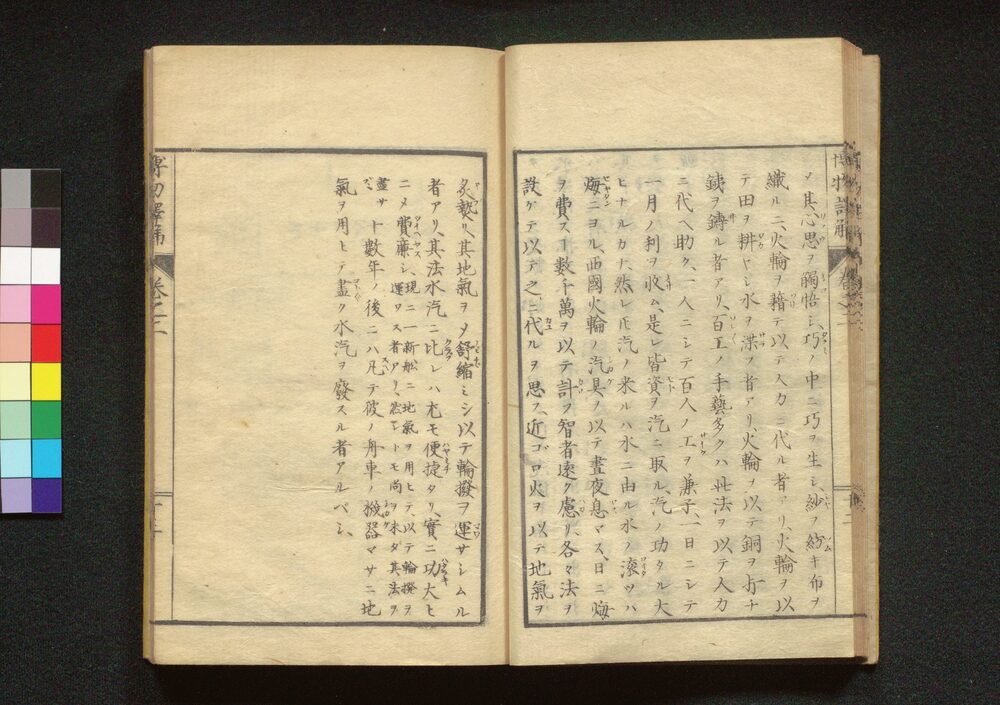 博物新編 卷之二
ノ其心思ヲ觸悟シ巧ノ中ニ巧ヲ生シ紗ヲ紡キ布ヲ
織ルニ火輪ヲ藉テ以テ人力ニ代ル者アリ火輪ヲ以
テ田ヲ耕ヤシ水ヲ潑ヲ者アリ火輪ヲ以テ銅ヲ打チ
銕ヲ鑄ル者アリ百工ノ手藝多クハ此法ヲ以テ人力
ニ代ヘ助ク一人ニシテ百人ノ工ヲ兼子一日ニシテ
一月ノ利ヲ收ム是レ皆資ヲ汽ニ取ル汽ノ功タル大
ヒナルカナ然レ𪜈汽ノ来ルハ水ニ由ル水ノ滚ツハ
煤ニヨル西國火輪ノ汽具ノ以テ晝夜息マス日ニ煤
ヲ費スヿ數千萬ヲ以テ計フ智者遠ク慮リ各々法ヲ
設ケテ以テ之ニ代ルヲ思フ近ゴロ火ヲ以テ地氣ヲ
十二
タ炙𤍠リ其地氣ヲメ舒縮ミシ以テ輪撥ヲ運サシムル
者アリ其法水汽ニ比レハ尤モ便捷タリ實ニ功大ヒ
ニメ費廉シ現ニ一新船ニ地氣ヲ用ヒテ以テ輪撥ヲ運ワス者アリ然レトモ尚ヲ未タ其法ヲ
盡サ ト數年ノ後ニハ凡テ彼ノ舟車ノ撥器マサニ地
氣ヲ用ヒテ盡ク水汽ヲ廢スル者アルベシ
卷之二